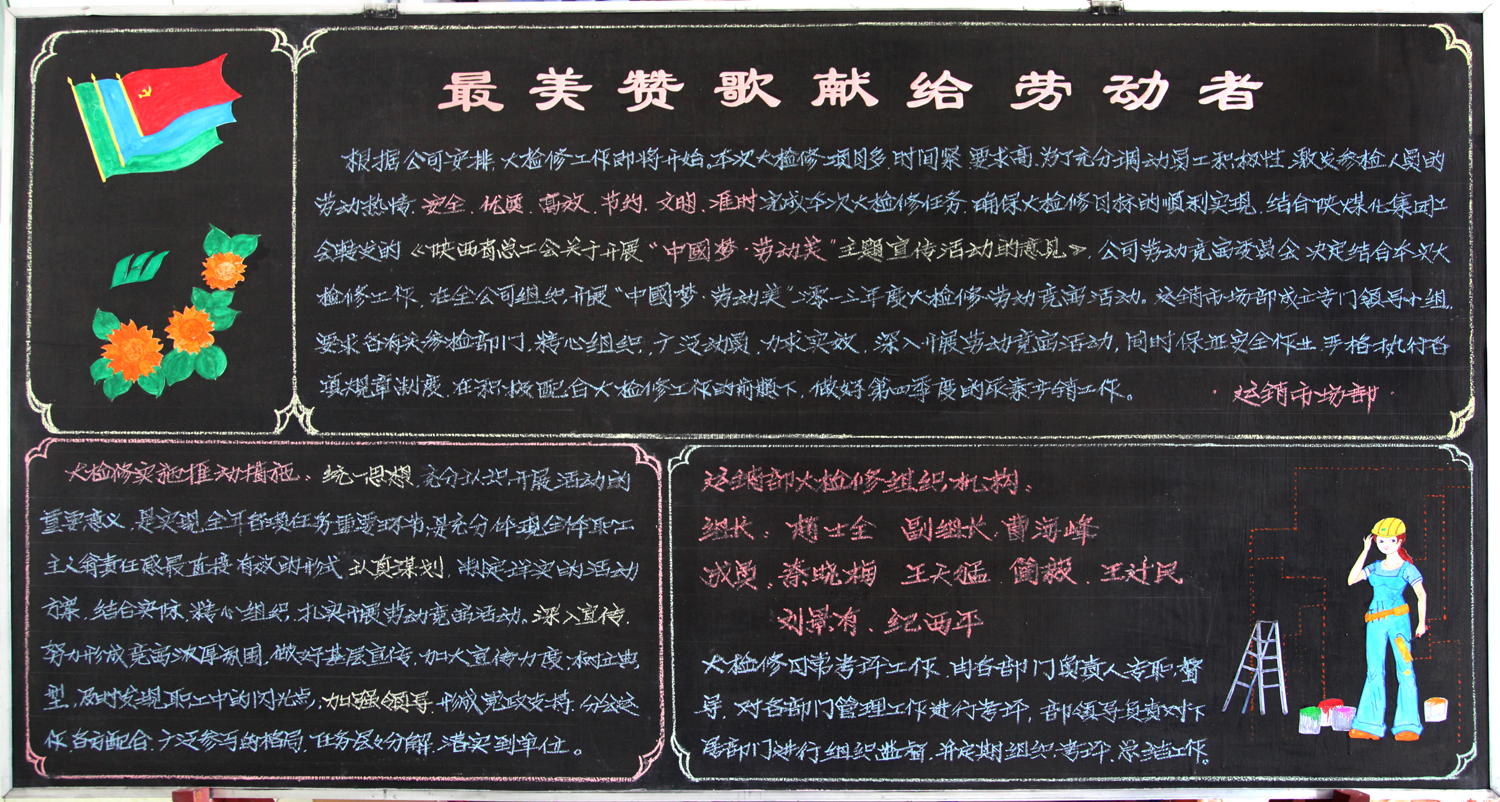 最美赞歌献给劳动者
根据公司安排,大检修工作即将开始。本次大检修项目多,时间紧,要求高,为了充分调动员工积极性,激发参检人员的
劳动热情,安全、优质、高效、节约、文明、准时完成本次大检修任务,确保大检修目标的顺利实现,结合陕煤化集团工
会转发的《陕西省总工会关于开展“中國梦·劳动美”主题宣传活动的意见》,公司劳动竞赛委员会决定结合本次大
检修工作,在全公司组织开展“中國梦·劳动美”二零一三年度大检修劳动竞赛活动。运销市场部成立专门领导小组,
要求各有关参检部门,精心组织,广泛动员,力求实效,深入开展劳动竞赛活动,同时保证安全作业,严格执行各
项规章制度,在积极配合大检修工作的前题下,做好第四季度的尿素开销工作。
·运销市场部·
大检修实施推动措施:统一思想,充分认识开展活动的
重要意义,是实现全年各项任务重要环节,是充分体现全体职工
主人翁责任感最直接有效的形式,认真谋划,制定详实的活动
方案,结合实际,精心组织,扎实开展劳动竞赛活动。深入宣传,
努力形成竞赛浓厚氛围,做好基层宣传,加大宣传力度,树立典
型,及时发现职工中的闪光点,加强领导,形成党政支持,分公运
作,各方配合,广泛参与的格局,任务层々分解,落实到单位。
运销部大检修组织机构:
组长:赵士全 副组长:曹海峰
成员:秦晓梅 王天猛、简薇、王过民
刘景有、纪西平
大检修日常考评工作,由各部门负责人专职督
导,对各部门管理工作进行考评,部领导负责对下
属部门进行组织监督,并定期组织考评,总结工作。